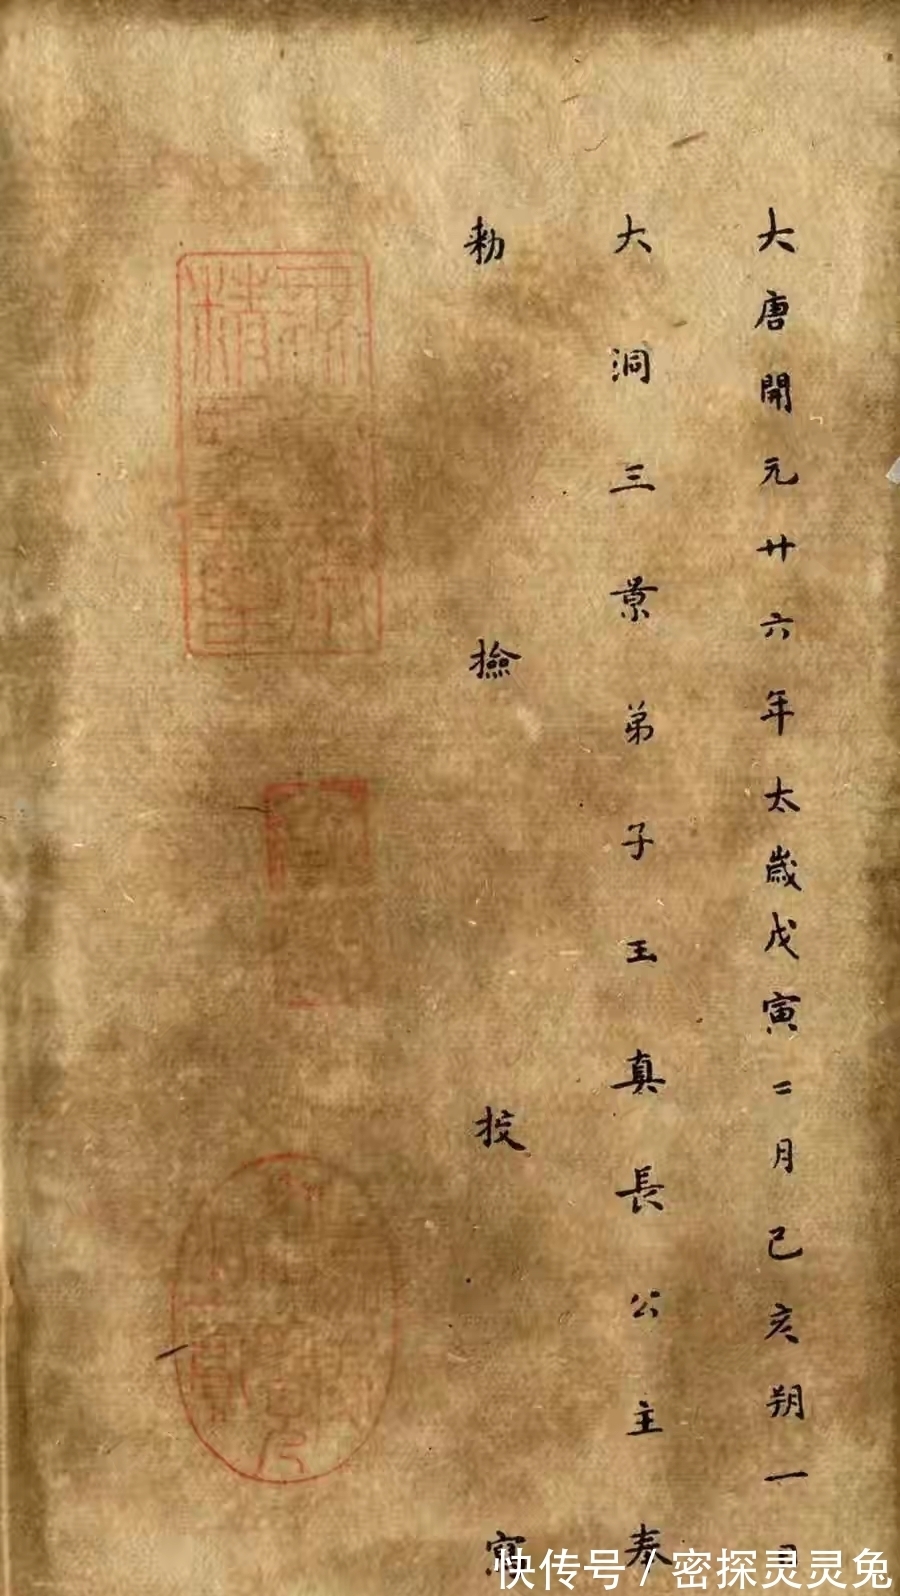 大唐開元廿六年太歲戊寅二月己亥朔一日
大洞三景弟子玉真長公主奉
勅撿挍寫
快传号/密探灵灵兔